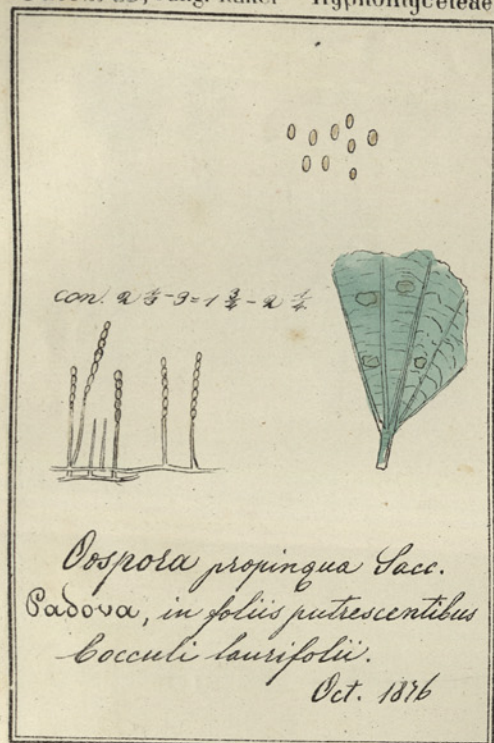 Hyphomyceteae
con. 2 ½-3=1 ¾-2 ¼
Oospora propinqua Sacc.
Padova, in foliis putrescentibus
Cocculi laurifolii.
Oct. 1876